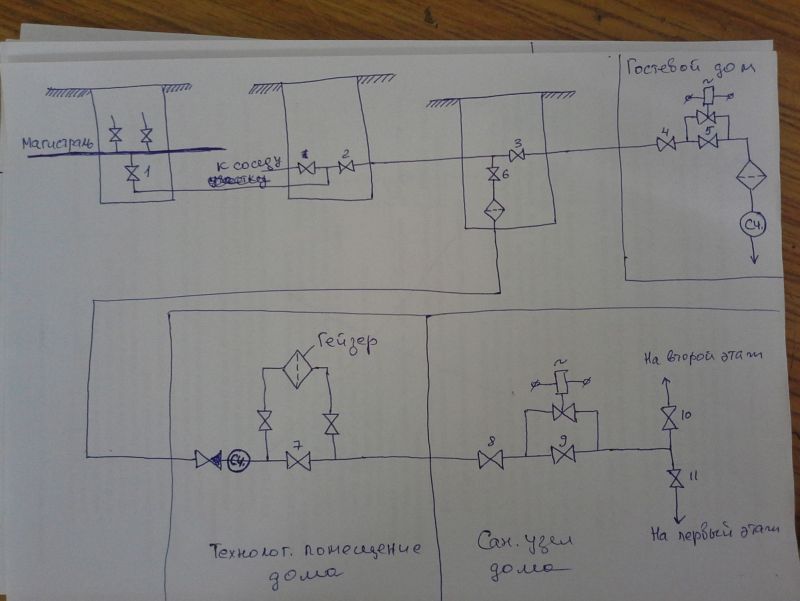 Гостевой дом
~
Магистраль
1
к соседу
2
3
6
4
5
Сч.
Гейзер
7
Сч.
~
8
9
На второй этаж
10
11
На первый этаж
Технолог. помещение
дома
Сан. узел
дома